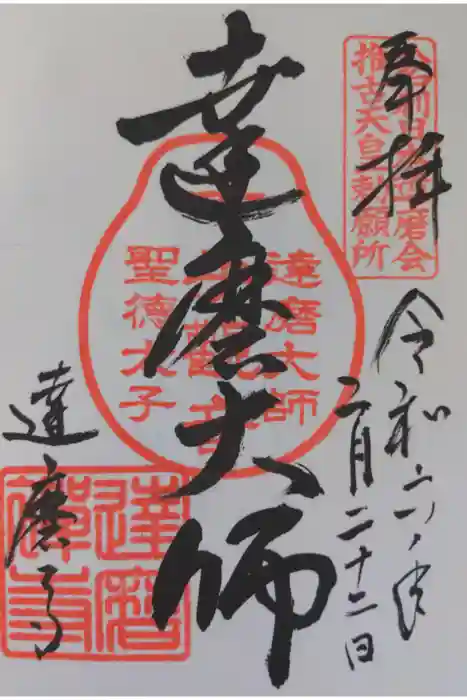 奉拝
推古天皇勅願所
令和六年
二月二十二日
達磨大師
達磨大師
聖徳太子
達磨寺
達磨